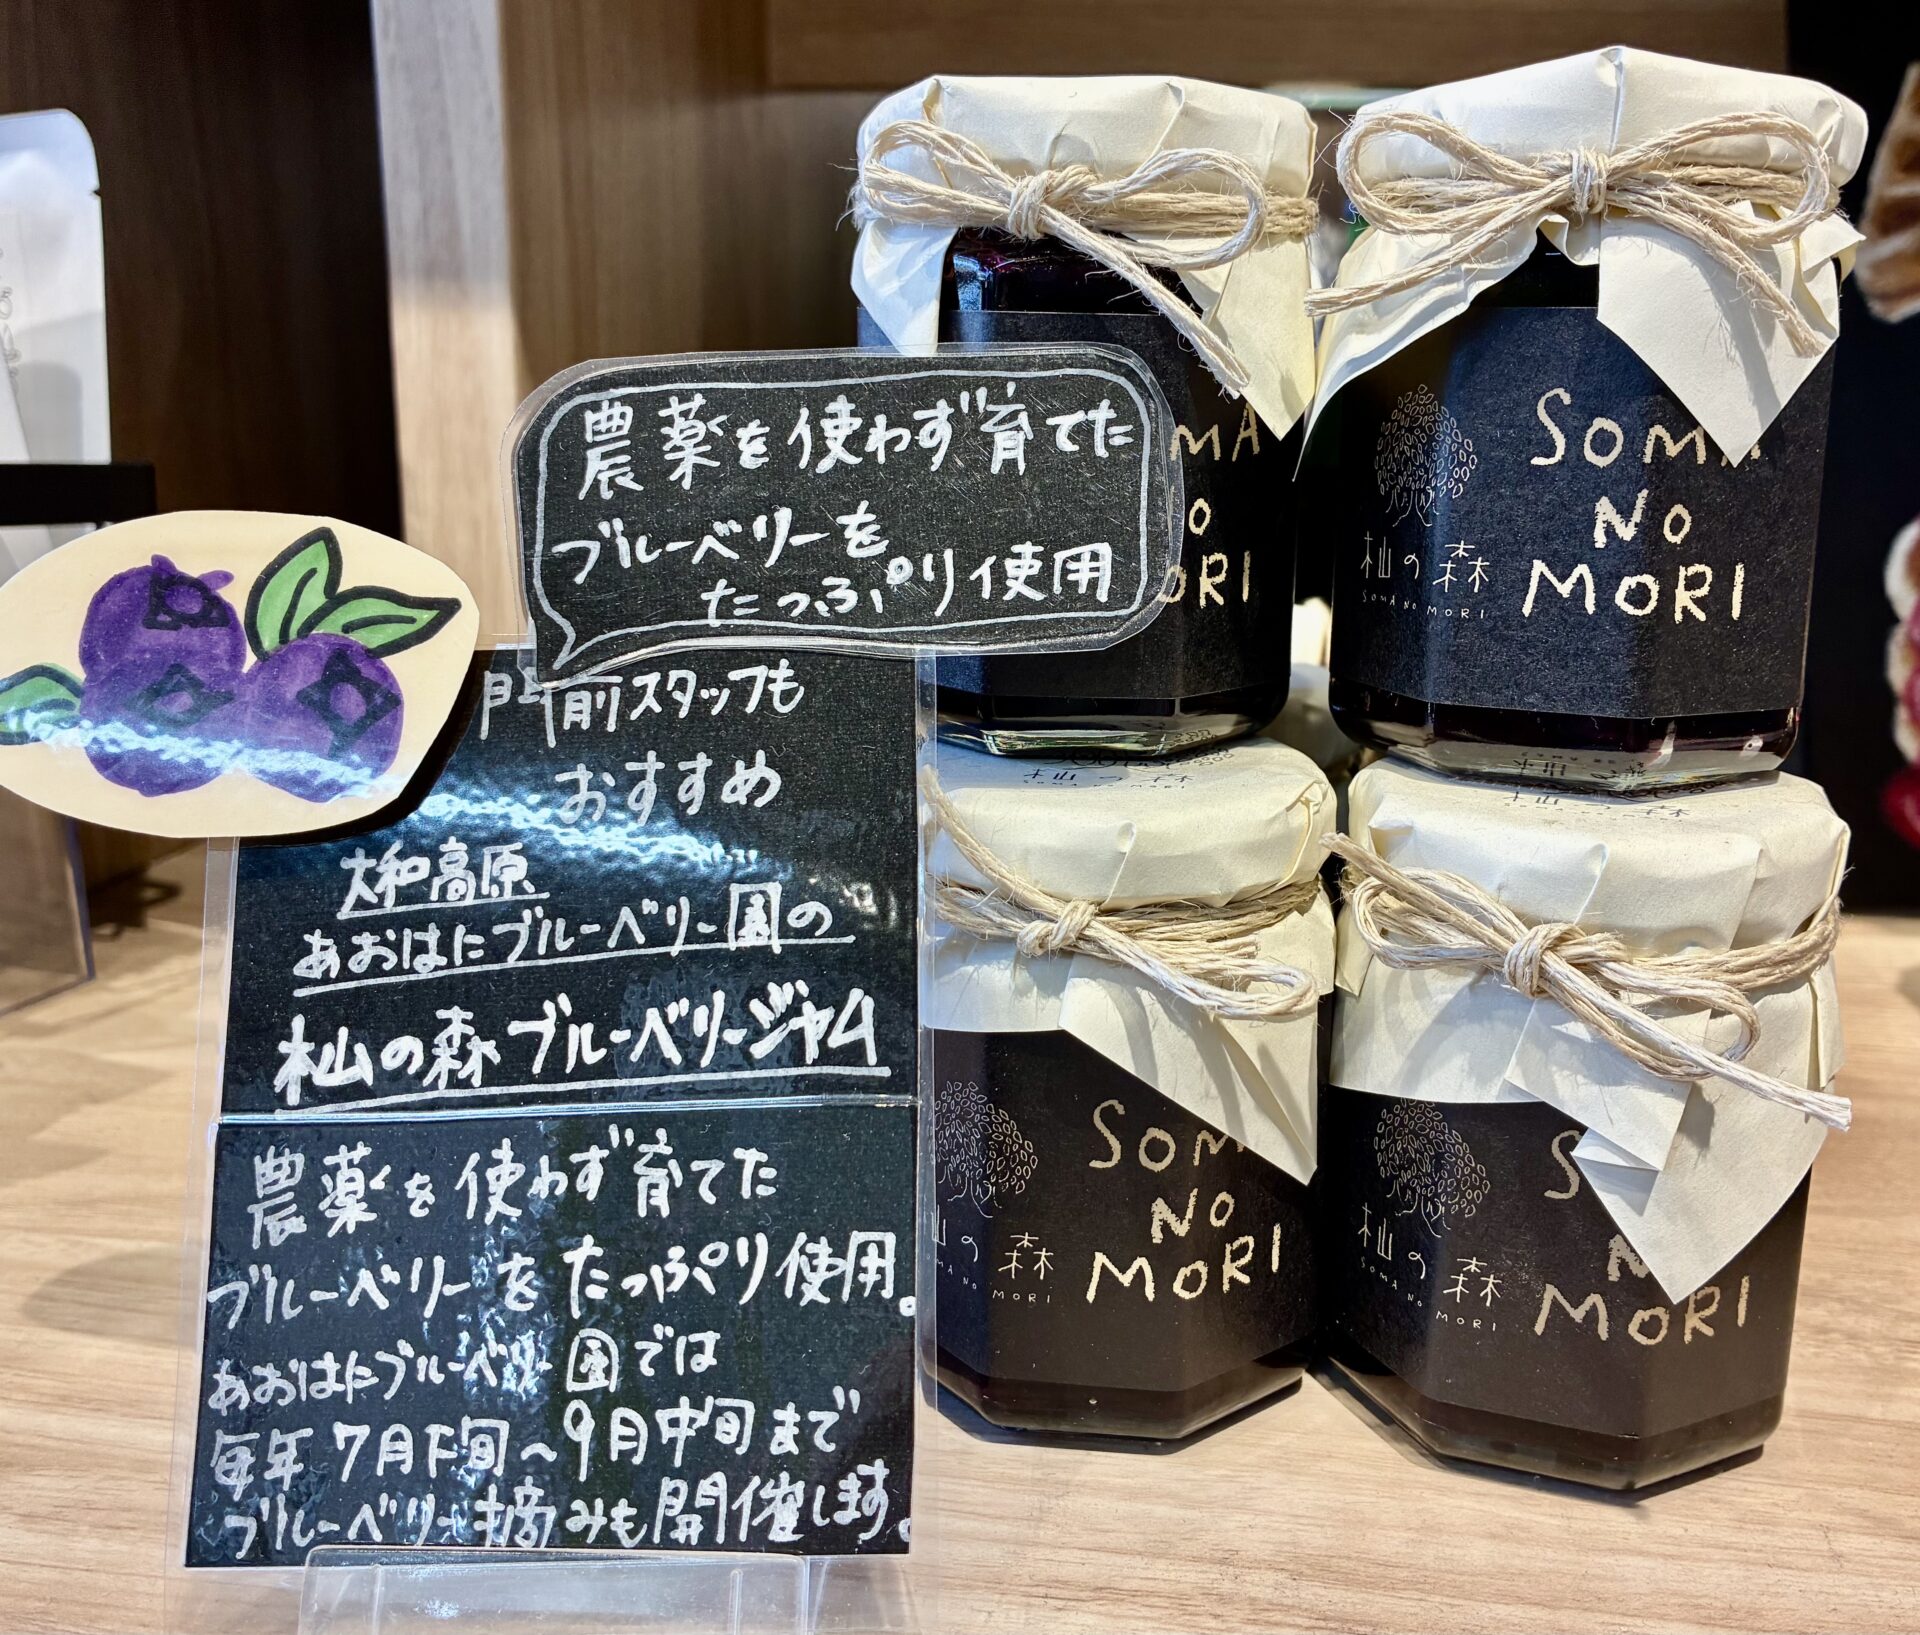 農薬を使わず育てた
ブルーベリーを
たっぷり使用
門前スタッフも
おすすめ
大和高原
あおはにブルーベリー園の
杣の森ブルーベリージャム
農薬を使わず育てた
ブルーベリーをたっぷり使用。
あおはにブルーベリー園では
毎年7月下旬〜9月中旬まで
ブルーベリー摘みも開催します。
MA
NO
ORI
SOMA
NO
MORI
杣の森
SOMA NO MORI
杣の森
SOMA NO MORI
SOMA
NO
MORI
杣の森
SOMA NO MORI
S
N
MORI
杣の森
SOMA NO MORI